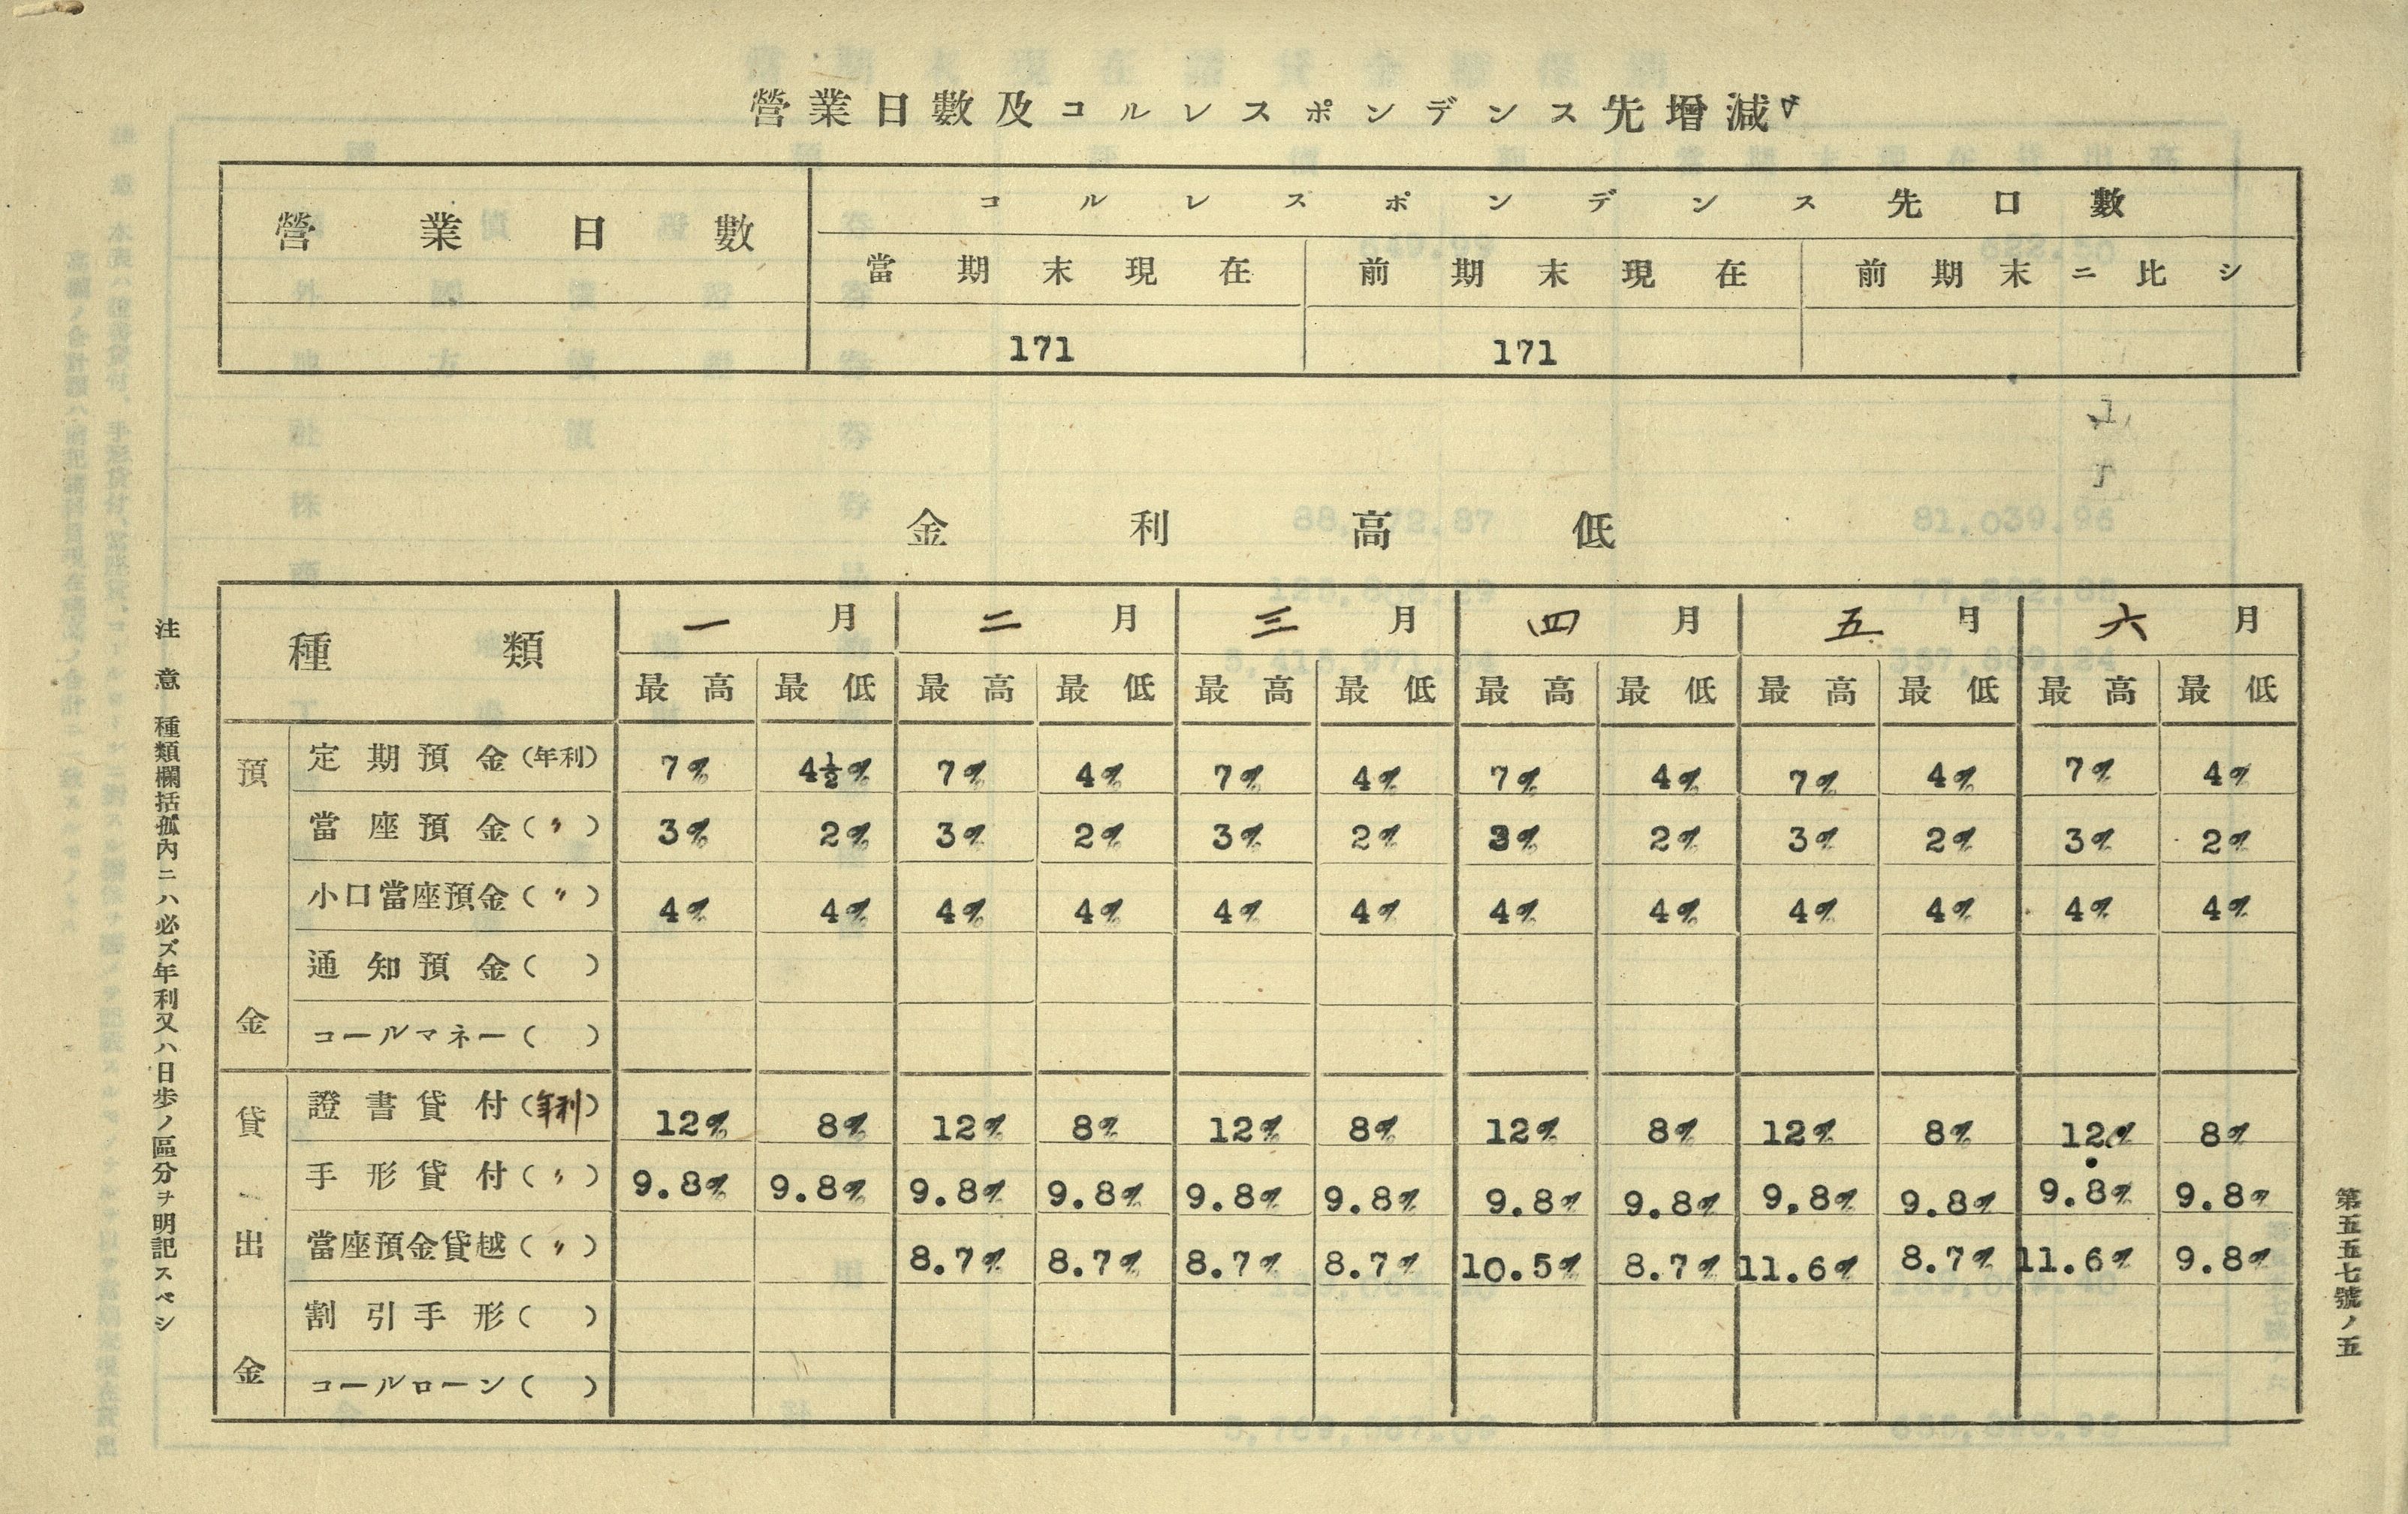 營業日數及コルレスポンデンス先増減
營業日數 コルレスポンデンス先口數
當期末現在 前期末現在 前期末ニ比シ
171 171
金利高低
種類 一月 二月 三月 四月 五月 六月
最高 最低 最高 最低 最高 最低 最高 最低 最高 最低 最高 最低
預金
定期預金(年利) 7% 4½% 7% 4% 7% 4% 7% 4% 7% 4% 7% 4%
當座預金(〃) 3% 2% 3% 2% 3% 2% 3% 2% 3% 2% 3% 2%
小口當座預金(〃) 4% 4% 4% 4% 4% 4% 4% 4% 4% 4% 4% 4%
通知預金( )
コールマネー( )
貸出金
證書貸付(年利) 12% 8% 12% 8% 12% 8% 12% 8% 12% 8% 12% 8%
手形貸付(〃) 9.8% 9.8% 9.8% 9.8% 9.8% 9.8% 9.8% 9.8% 9.8% 9.8% 9.8% 9.8%
當座預金貸越(〃) 8.7% 8.7% 8.7% 8.7% 10.5% 8.7% 11.6% 8.7% 11.6% 9.8%
割引手形( )
コールローン( )
注意 種類欄括孤內ニハ必ズ年利又ハ日歩ノ區分ヲ明記スベシ
第五五七號ノ五